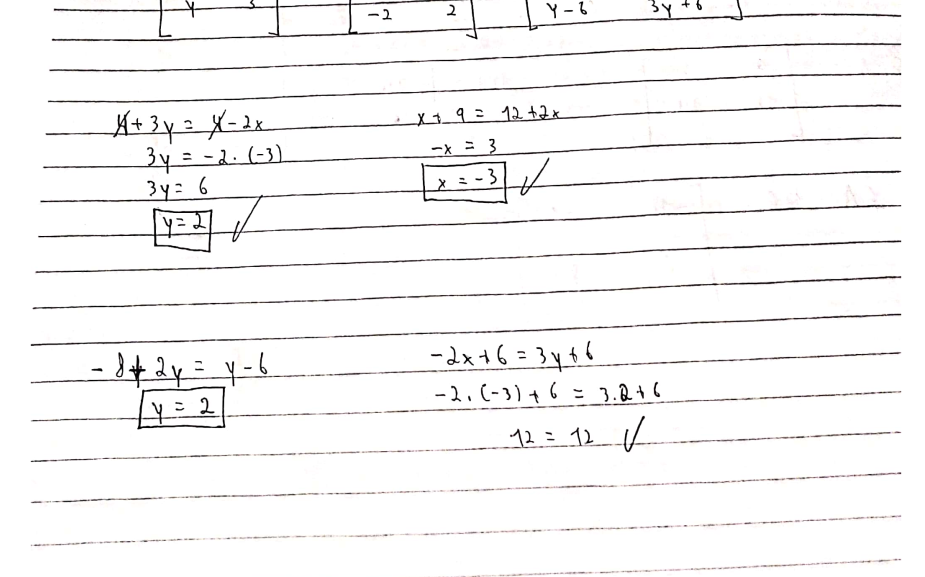 y 3 -2 2 y-6 3y+6
4+3y = 4-2x
3y = -2.(-3)
3y = 6
y = 2
x + 9 = 12+2x
-x = 3
x = -3
-8+2y = y-6
y = 2
-2x+6 = 3y+6
-2.(-3)+6 = 3.2+6
12 = 12